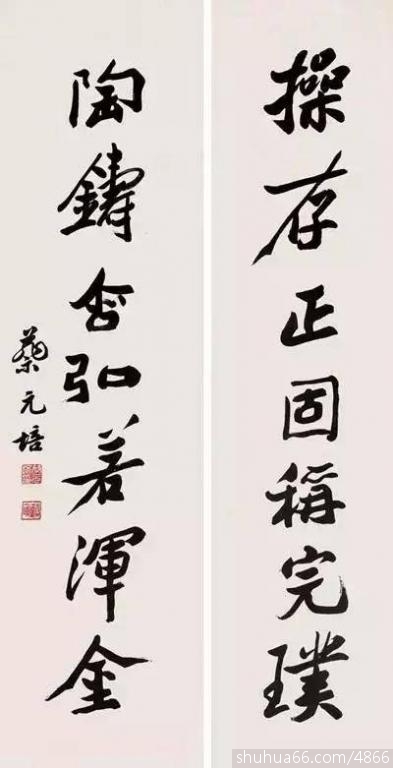 操存正固稱完璞
陶鑄含弘若渾金
蔡元培
shuhua66.com/4866